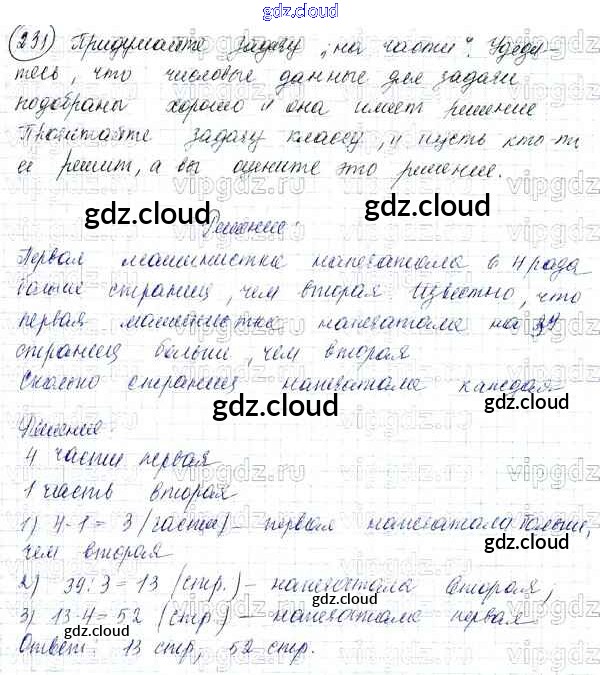 gdz.cloud
gdz.cloud
(231) Придумайте задачу „на части“. Убеди-
тесь, что числовые данные для задачи
подобраны хорошо и она имеет решение
Прочитайте задачу классу, и пусть кто-то
её решит, а вы оцените это решение.
gdz.cloud gdz.cloud
Решение:
Первая машинистка напечатала в 4 раза
больше страниц, чем вторая Известно, что
первая машинистка напечатала на 39
страниц больше, чем вторая
Сколько страниц напечатала каждая
gdz.cloud gdz.cloud
Решение:
4 части первая
1 часть вторая
1) 4-1= 3 (части) – первая напечатала больше,
чем вторая
2) 39:3=13 (стр.) – напечатала вторая,
3) 13·4=52 (стр) – напечатала первая
Ответ: 13 стр, 52 стр.
gdz.cloud gdz.cloud